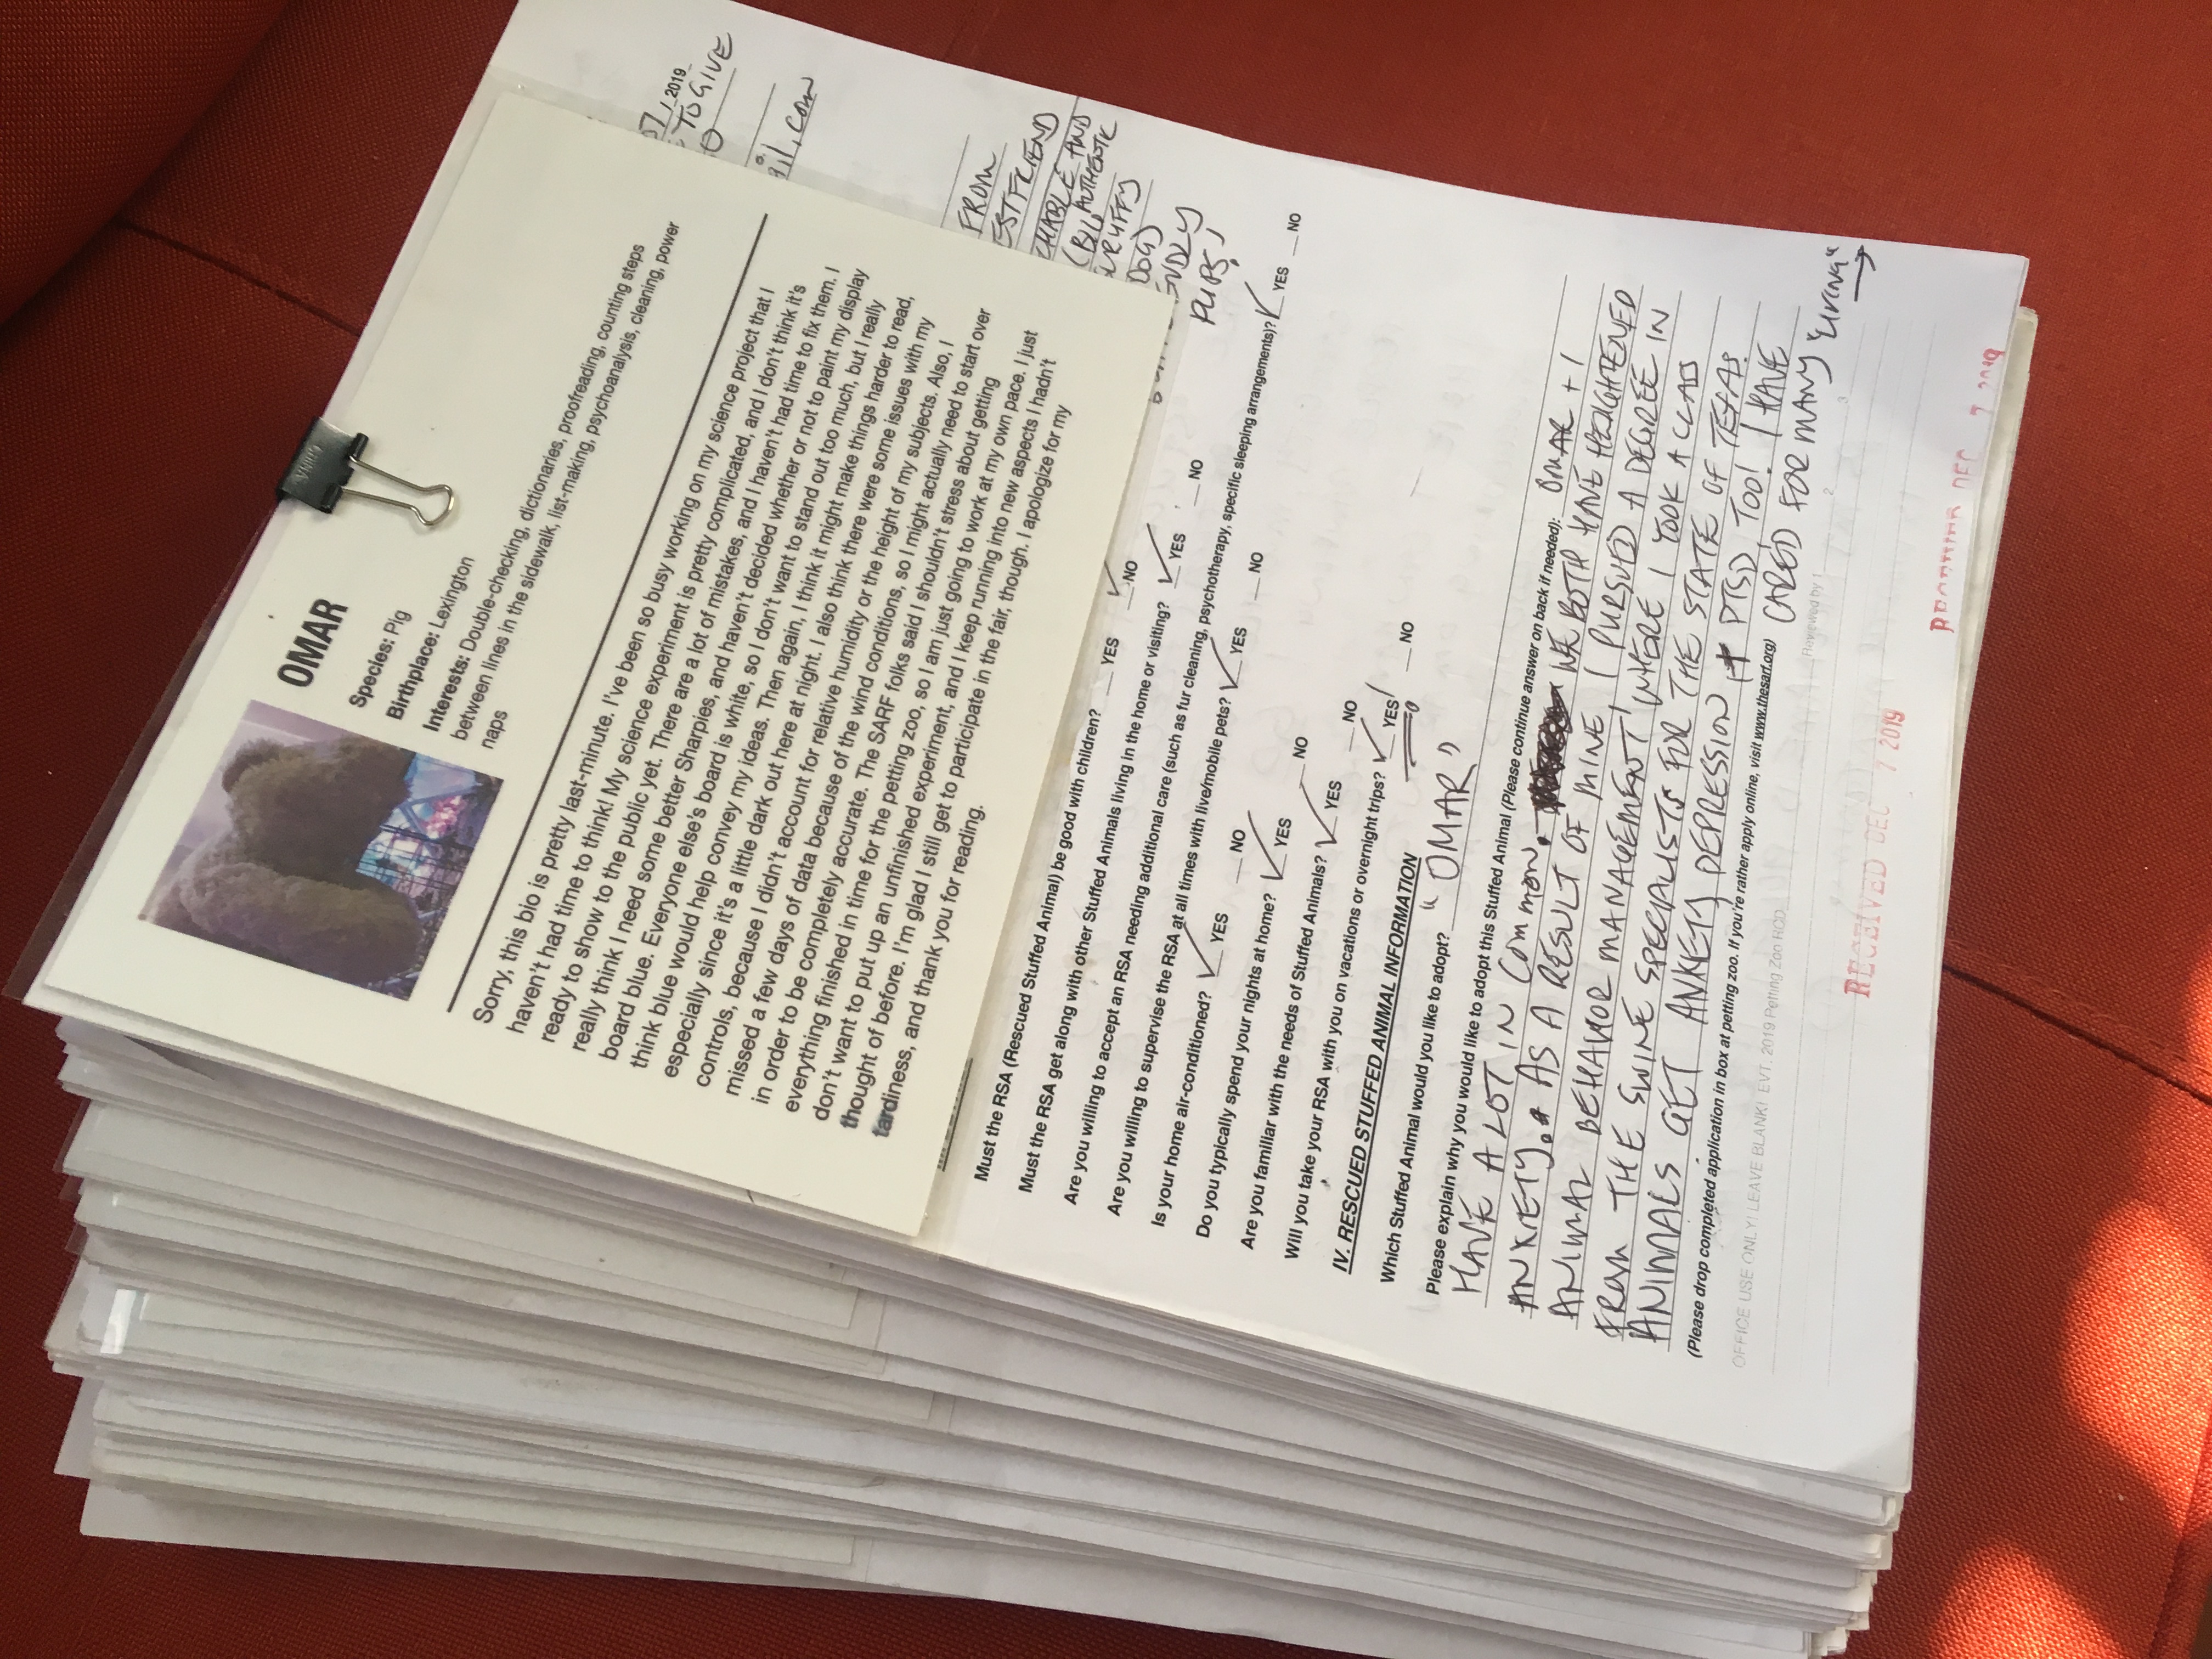 CHINA
OMAR
Species: Pig
Birthplace: Lexington
Interests: Double-checking, dictionaries, proofreading, counting steps
between lines in the sidewalk, list-making, psychoanalysis, cleaning, power
naps
Sorry, this bio is pretty last-minute. I've been so busy working on my science project that I
haven't had time to think! My science experiment is pretty complicated, and I don't think it's
ready to show to the public yet. There are a lot of mistakes, and I haven't had time to fix them. I
really think I need some better Sharpies, and haven't decided whether or not to paint my display
board blue. Everyone else's board is white, so I don't want to stand out too much, but I really
think blue would help convey my ideas. Then again, I think it might make things harder to read,
especially since it's a little dark out here at night. I also think there were some issues with my
controls, because I didn't account for relative humidity or the height of my subjects. Also, I
missed a few days of data because of the wind conditions, so I might actually need to start over
in order to be completely accurate. The SARF folks said I shouldn't stress about getting
everything finished in time for the petting zoo, so I am just going to work at my own pace. I just
don't want to put up an unfinished experiment, and I keep running into new aspects I hadn't
thought of before. I'm glad I still get to participate in the fair, though. I apologize for my
tardiness, and thank you for reading.
07/2019
TO GIVE
ail.com
FROM
EST FRIEND
CHABLE AND
(BU AUTHENTIC
RUFFY
DOG)
ENDLY
PUPS!
Must the RSA (Rescued Stuffed Animal) be good with children? YES ✓ NO
Must the RSA get along with other Stuffed Animals living in the home or visiting? ✓ YES NO
Are you willing to accept an RSA needing additional care (such as fur cleaning, psychotherapy, specific sleeping arrangements)? ✓ YES NO
Are you willing to supervise the RSA at all times with live/mobile pets? ✓ YES NO
Is your home air-conditioned? ✓ YES NO
Do you typically spend your nights at home? ✓ YES NO
Are you familiar with the needs of Stuffed Animals? ✓ YES NO
Will you take your RSA with you on vacations or overnight trips? ✓ YES! NO
IV. RESCUED STUFFED ANIMAL INFORMATION
Which Stuffed Animal would you like to adopt? "OMAR"
Please explain why you would like to adopt this Stuffed Animal (Please continue answer on back if needed): OMAR + I
HAVE A LOT IN COMMON. WE BOTH HAVE HEIGHTENED
ANXIETY. AS A RESULT OF MINE I PURSUED A DEGREE IN
ANIMAL BEHAVIOR MANAGEMENT, WHERE I TOOK A CLASS
FROM THE SWINE SPECIALISTS FOR THE STATE OF TEXAS.
ANIMALS GET ANXIETY, DEPRESSION + PTSD TOO! I HAVE
(Please drop completed application in box at petting zoo. If you're rather apply online, visit www.thesarf.org) CARED FOR MANY "LIVING" →
OFFICE USE ONLY! LEAVE BLANK! EVT. 2019 Petting Zoo ROD
Reviewed by 1
2
3
RECEIVED DEC 7 2019
RECEIVED DEC 7 2019